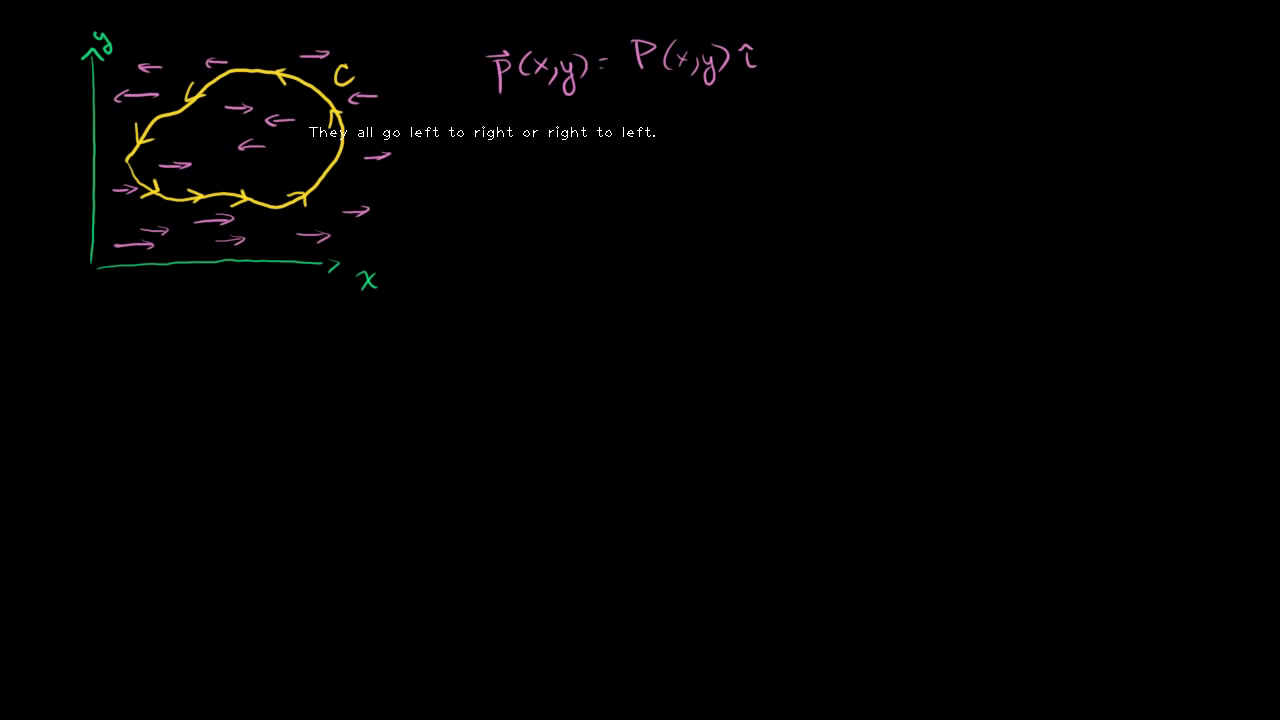 y
p⃗(x,y) = P(x,y) î
C
They all go left to right or right to left.
x